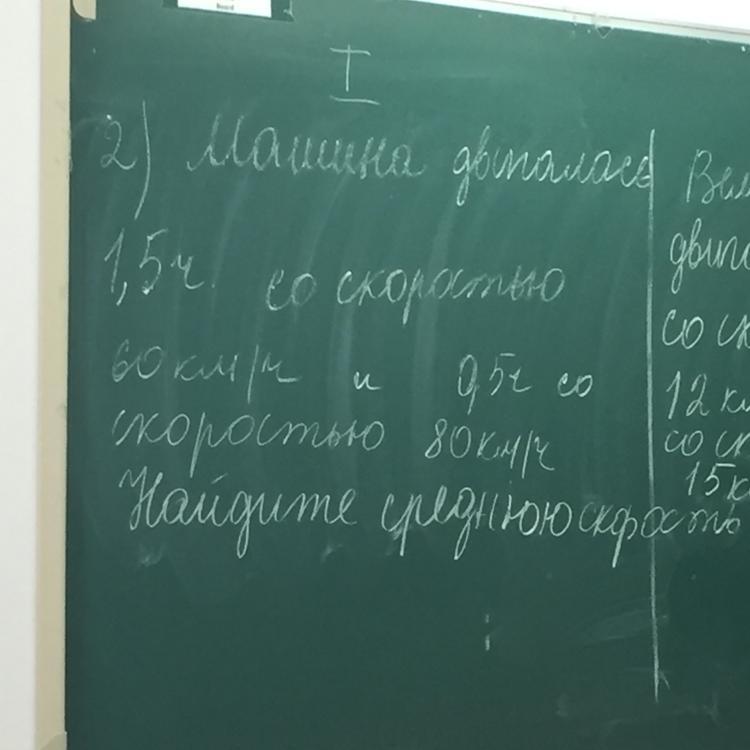 I
2) Машина двигалась
1,5ч со скоростью
60км/ч и 0,5ч со
скоростью 80км/ч
Найдите среднюю скорость
со
12
со
15